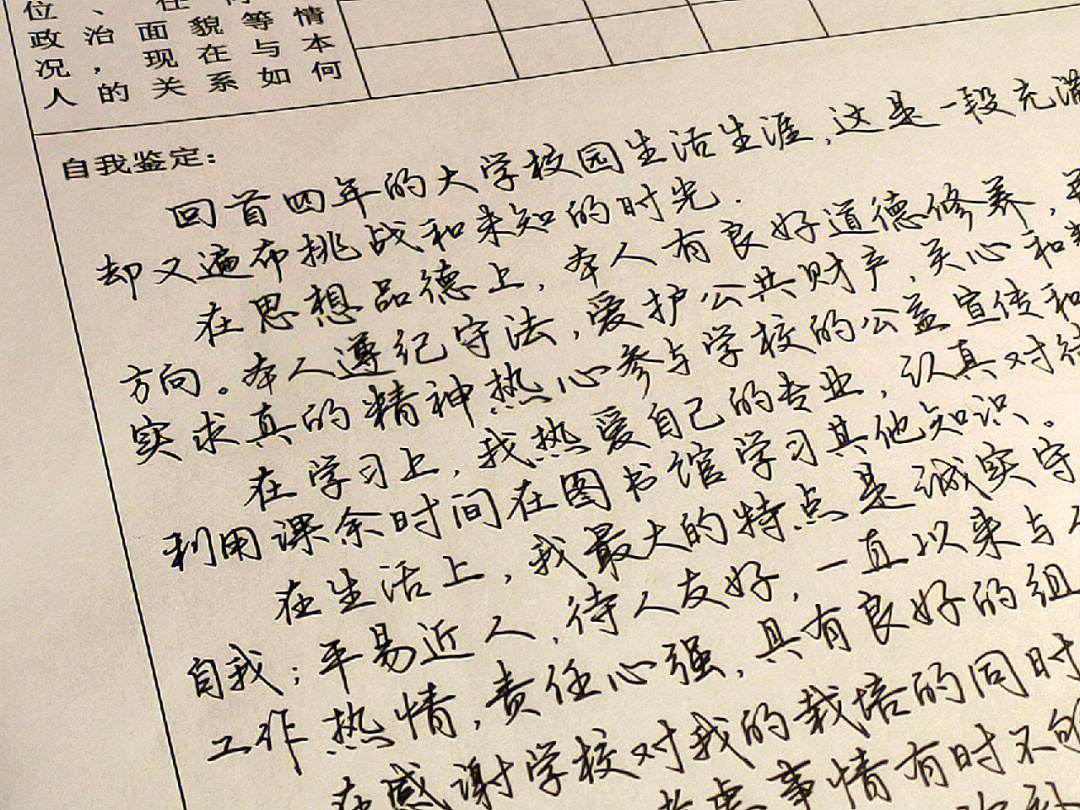 位、任
政治面貌等情
况，现在与本
人的关系如何
自我鉴定：
回首四年的大学校园生活生涯，这是一段充满
却又遍布挑战和未知的时光．
在思想品德上，本人有良好道德修养，
方向。本人遵纪守法，爱护公共财产，关心和
实求真的精神热心参与学校的公益宣传和
在学习上，我热爱自己的专业，认真对待
利用课余时间在图书馆学习其他知识。
在生活上，我最大的特点是诚实守
自我；平易近人，待人友好，一直以来与人
工作热情，责任心强，具有良好的组
在感谢学校对我的栽培的同时
考虑事情有时不够